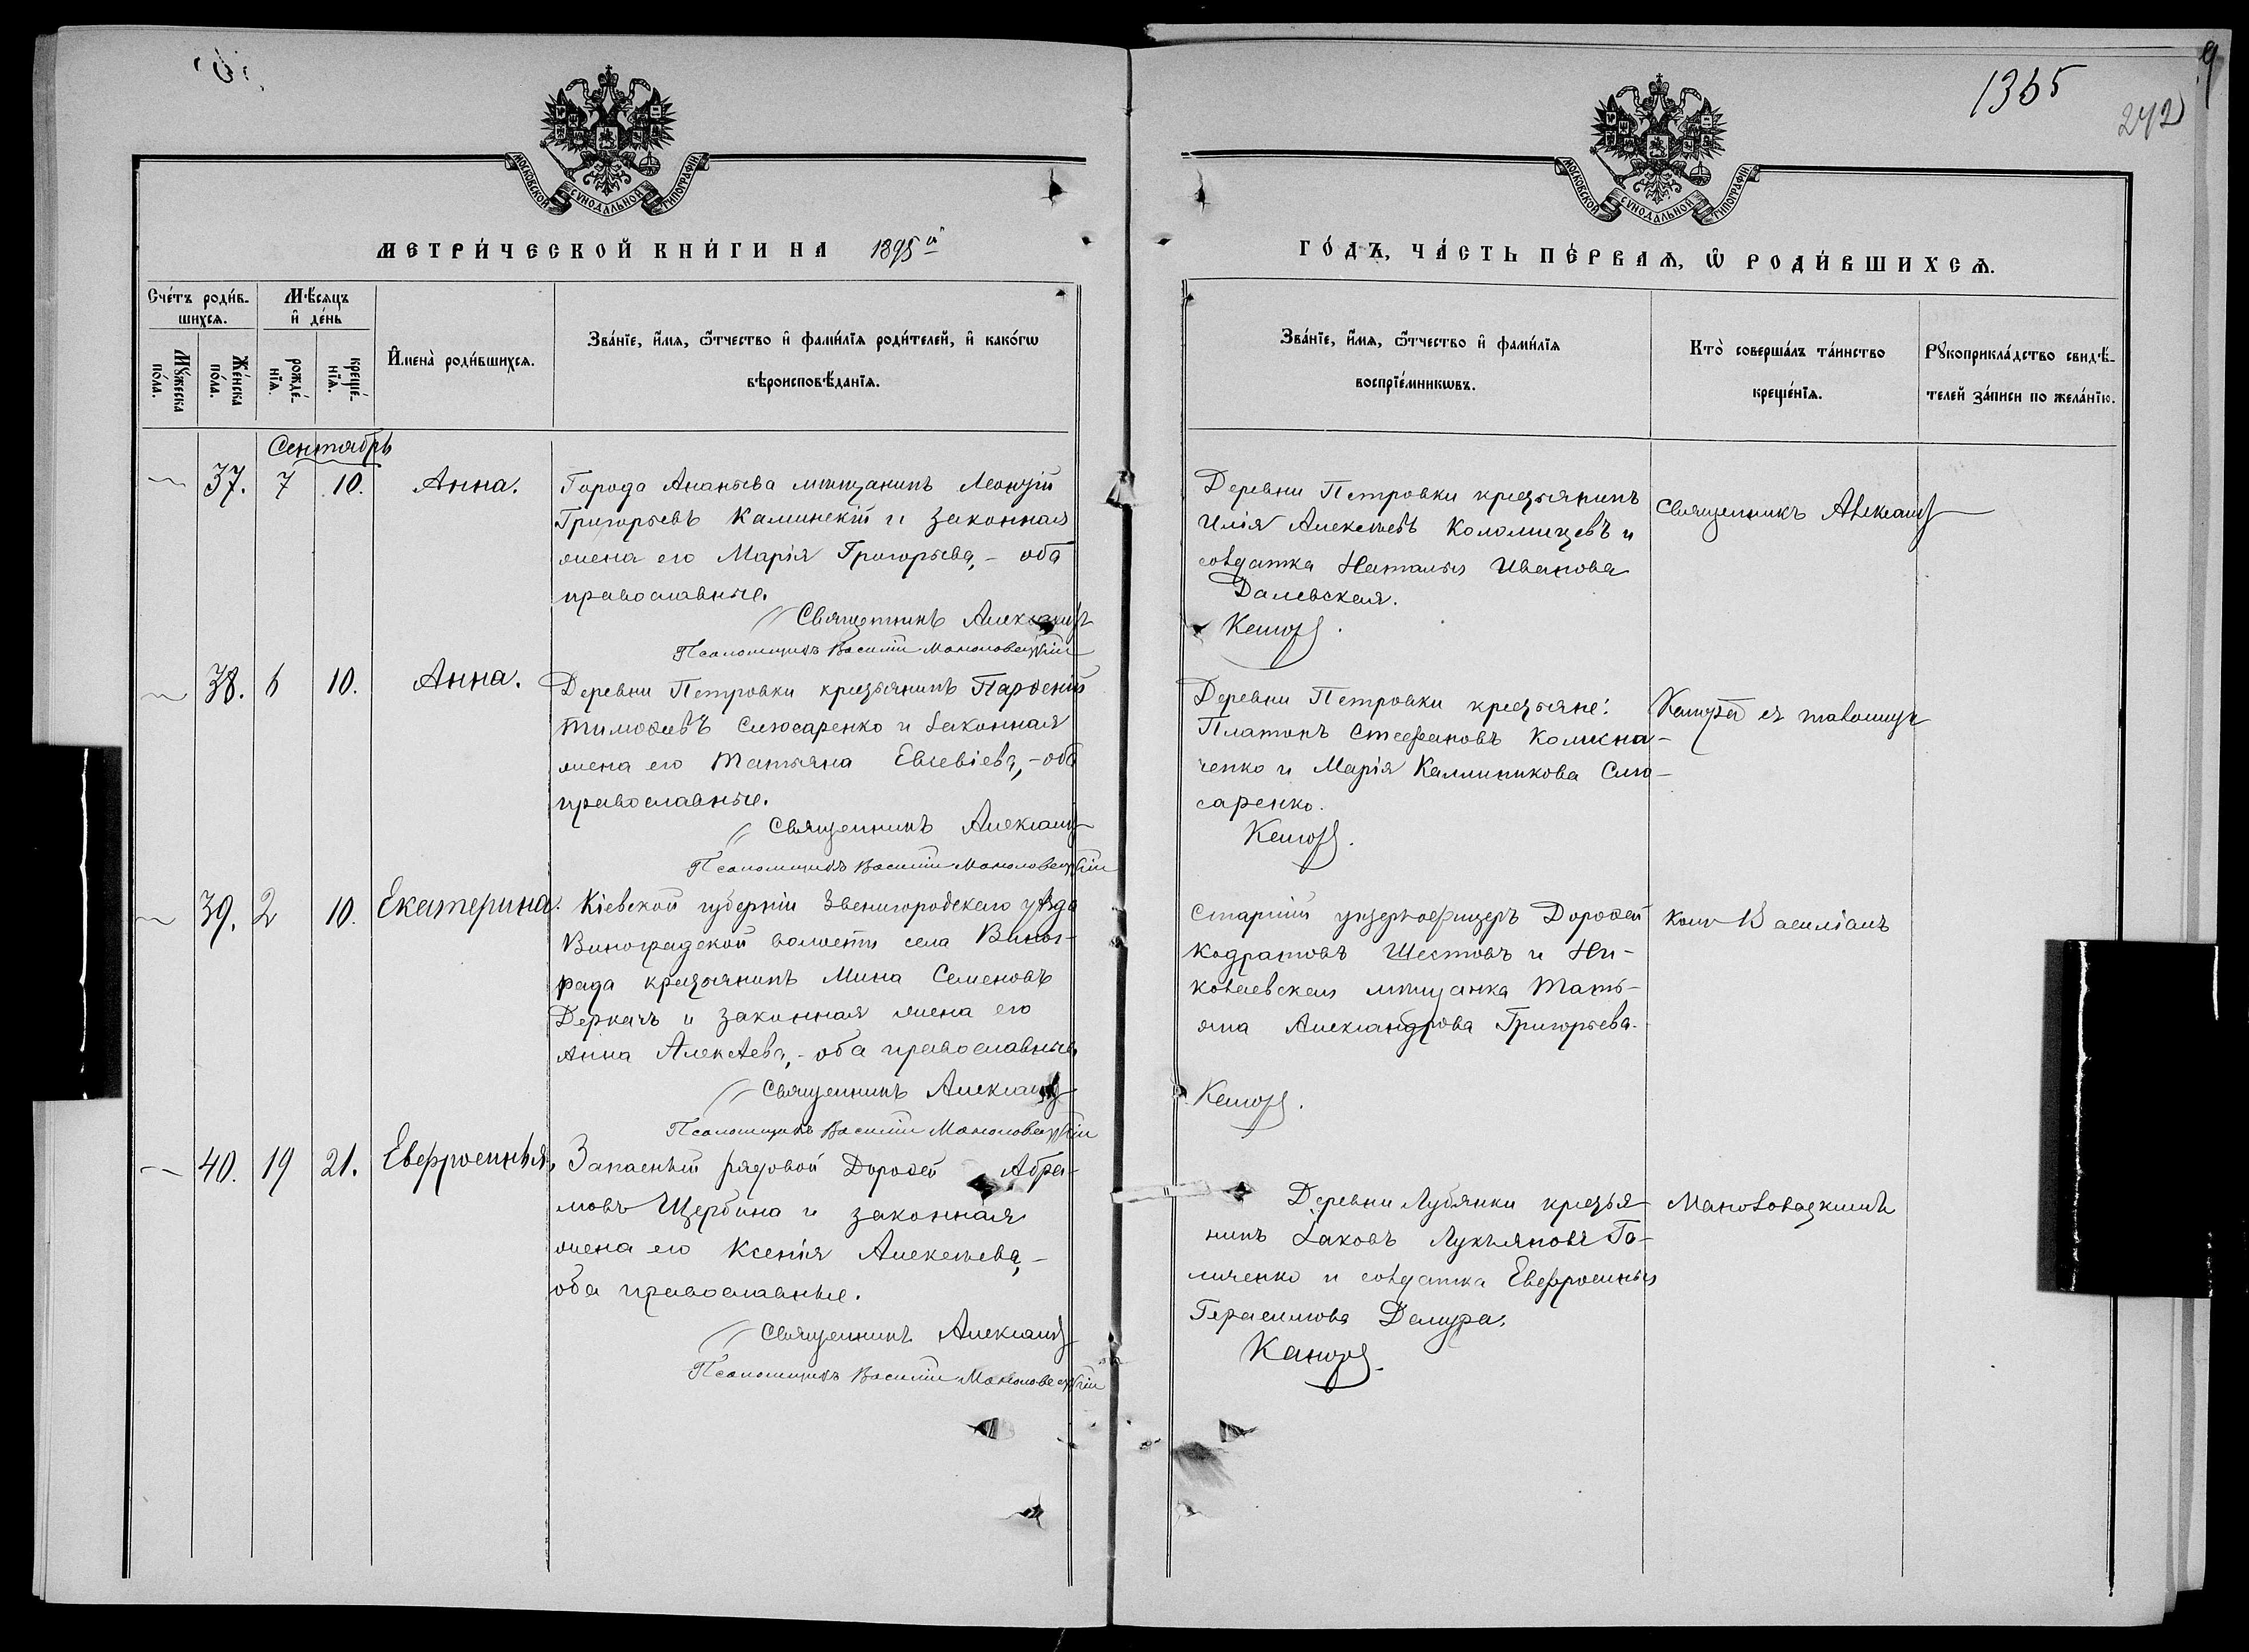 1365
242
9
МОСКОВСКОЙ СУНОДАЛЬНОЙ ТИПОГРАФІИ
МОСКОВСКОЙ СУНОДАЛЬНОЙ ТИПОГРАФІИ
МЕТРИ́ЧЕСКОЙ КНИ́ГИ НА 1895й
ГО́ДЪ, ЧА́СТЬ ПЕ́РВАѦ, Ѡ РОДИ́ВШИХСѦ.
Сче́тъ роди́в-
шихсѧ.
Мѣ́сяцъ
и де́нь
Мꙋ́жеска
по́ла.
Же́нска
по́ла.
рожде́-
нїѧ.
креще́-
нїѧ.
Имена̀ роди́вшихсѧ.
Зва́нїе, и́мѧ, ѻ́тчество и фами́лїѧ роди́телей, и како́гѡ
вѣроисповѣ́данїѧ.
Зва́нїе, и́мѧ, ѻ́тчество и фами́лїѧ
воспрїе́мникѡвъ.
Кто̀ соверша́лъ та́инство
креще́нїѧ.
Рꙋкоприкла́дство свидѣ́-
телей за́писи по жела́нїю.
Сентябрь
37. 7 10. Анна.
Города Ананьева мѣщанинъ Леонтій
Григорьевъ Каминскій и законная
жена его Марія Григорьева, - оба
православные.
Священникъ Александр
Псаломщикъ Василій Маноловецкій
Деревни Петровки крестьянинъ
Илія Алексѣевъ Коломицевъ и
солдатка Наталья Иванова
Далевская.
Священникъ Александ
38. 6 10. Анна.
Деревни Петровки крестьянинъ Парѳеній
Тимоѳеевъ Слюсаренко и законная
жена его Татьяна Евсевіева, - оба
православные.
Священникъ Александ
Псаломщикъ Василій Маноловецкій
Деревни Петровки крестьяне:
Платонъ Стефановъ
и Марія Каллиникова Слю-
саренко.
39. 2 10. Екатерина.
Кіевской губерніи Звенигородскаго уѣзда
Виноградской волости села Вино-
града крестьянинъ Мина Семеновъ
Деркачъ и законная жена его
Анна Алексѣева, - оба православные
Священникъ Александ
Псаломщикъ Василій Маноловецкій
Старшій унтерофицеръ Дороѳей
Кодратовъ Шестовъ и Ни-
колаевская мѣщанка Тать-
яна Александрова Григорьева.
Василіемъ
40. 19 21. Евфросинья.
Запасный рядовой Дороѳей Абра-
мовъ Щербина и законная
жена его Ксенія Алексѣева, -
оба православные.
Священникъ Александ
Псаломщикъ Василій Маноловецкій
Деревни Лубянки крестья-
нинъ Іаковъ Лукьяновъ Га-
личенко и солдатка Евфросинья
Герасимова
Маноловецкимъ